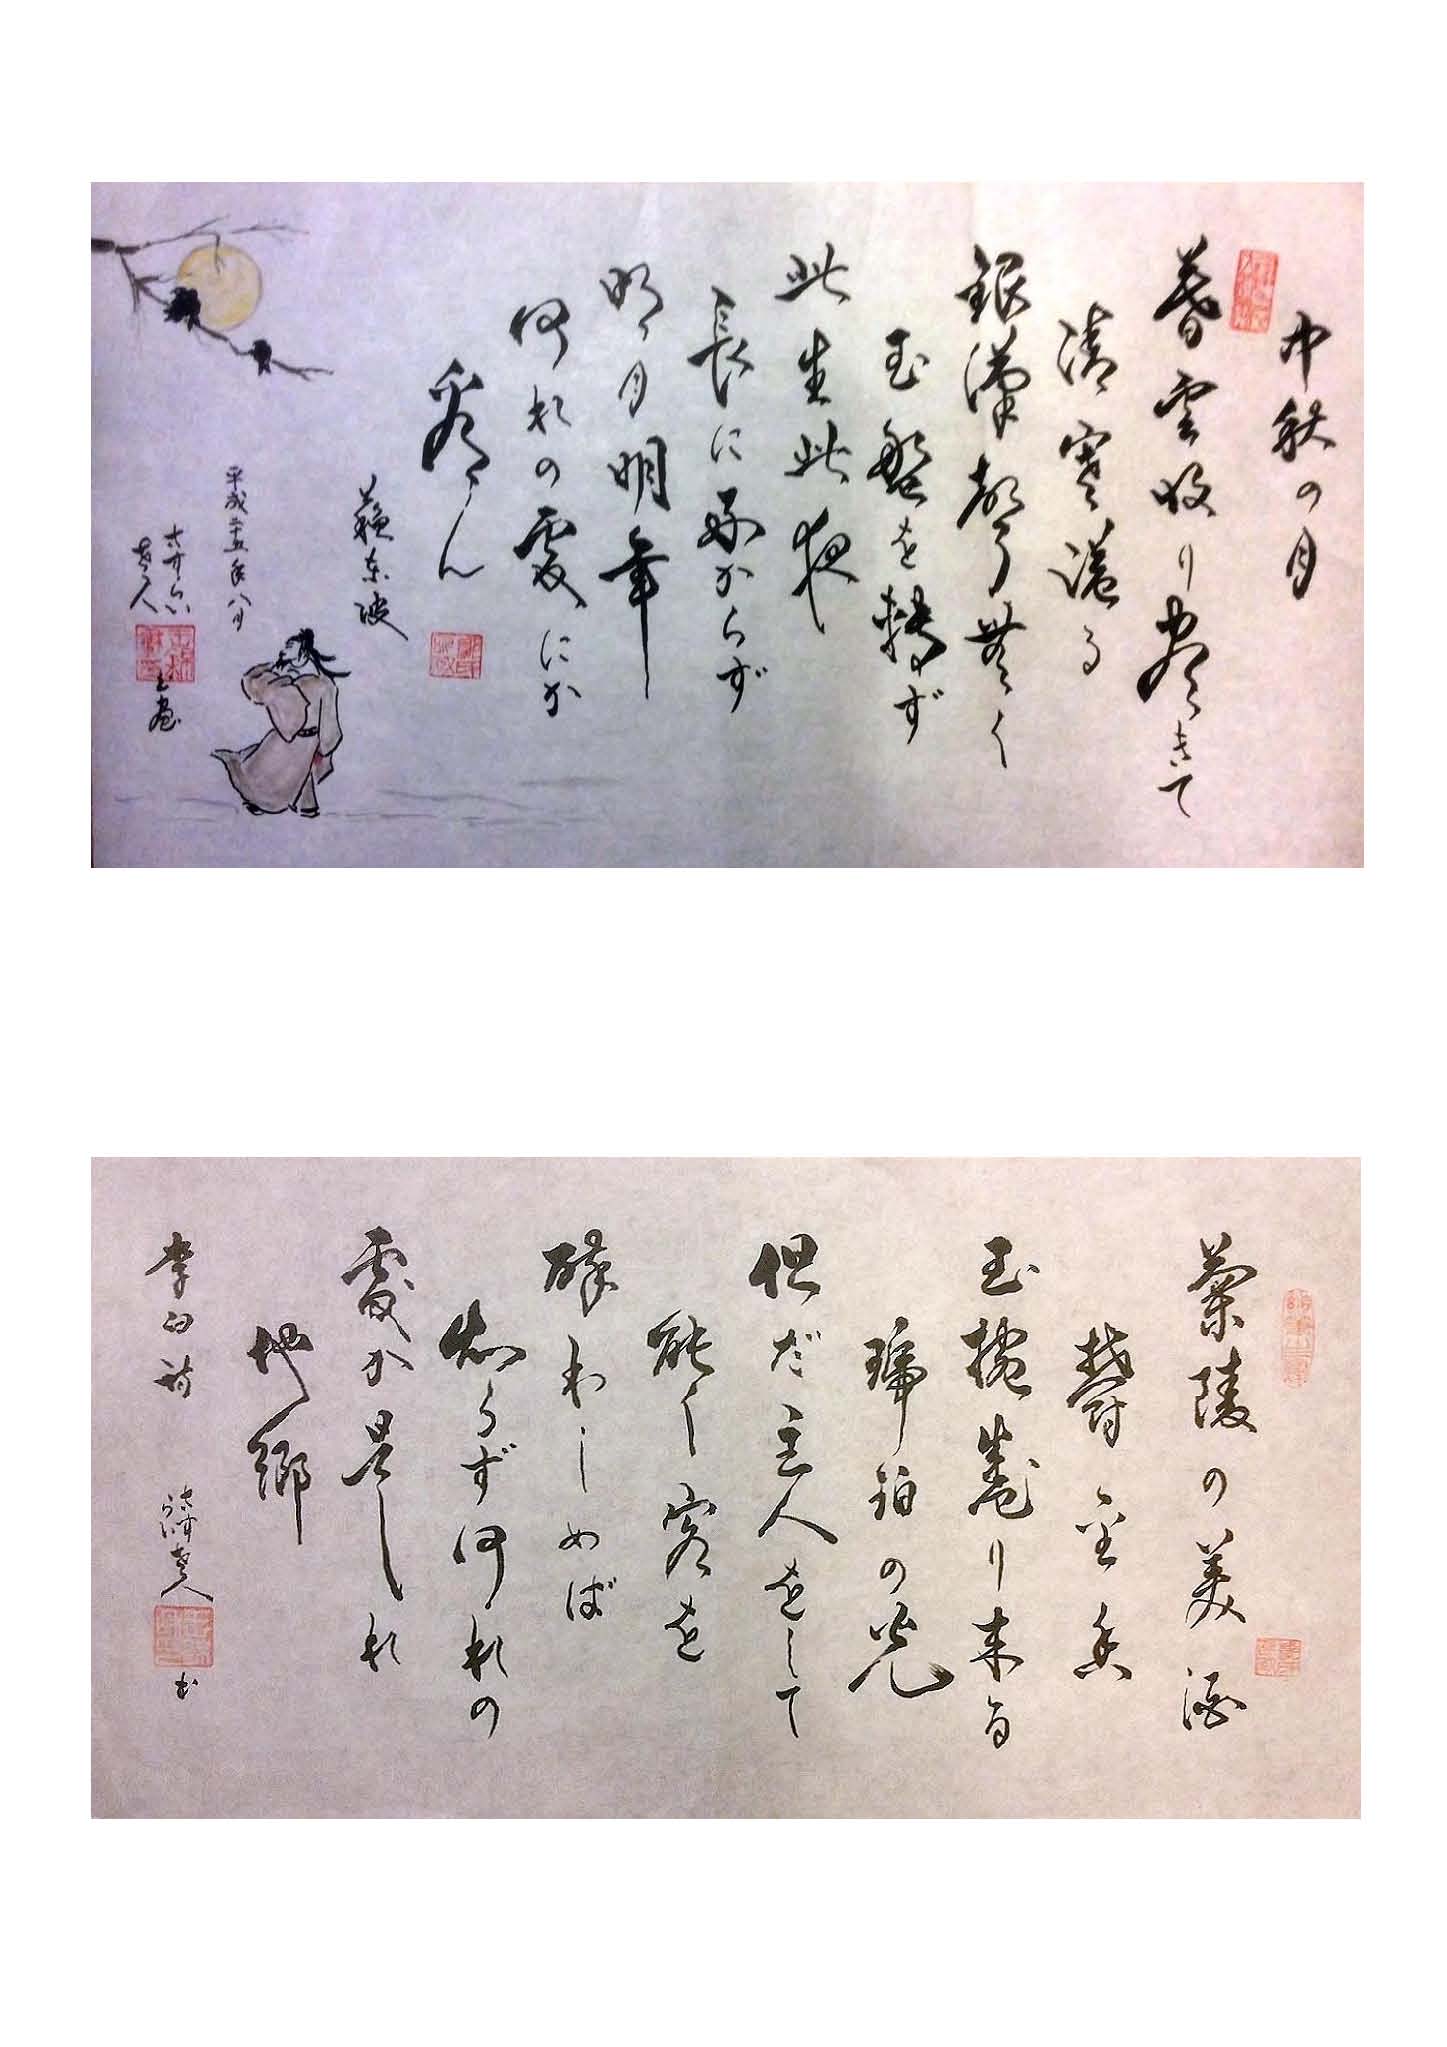 中秋の月
暮雲收り盡きて
清寒溢る
銀漢聲無く
玉盤を轉ず
此生此夜
長に好からず
明月明年
何れの處にか
看ん
蘇東坡
平成二十五年八月
老人
蘭陵の美酒
鬱金香
玉椀盛り来る
琥珀の光
但だ主人をして
能く客を
酔わしめば
知らず何れの
處か是れ
他郷
李白詩
老人
書